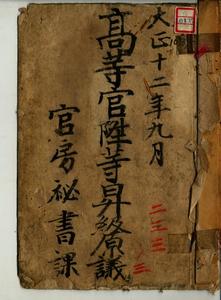 大正十二年九月
高等官陞等昇級原議
官房秘書課
二三三
三